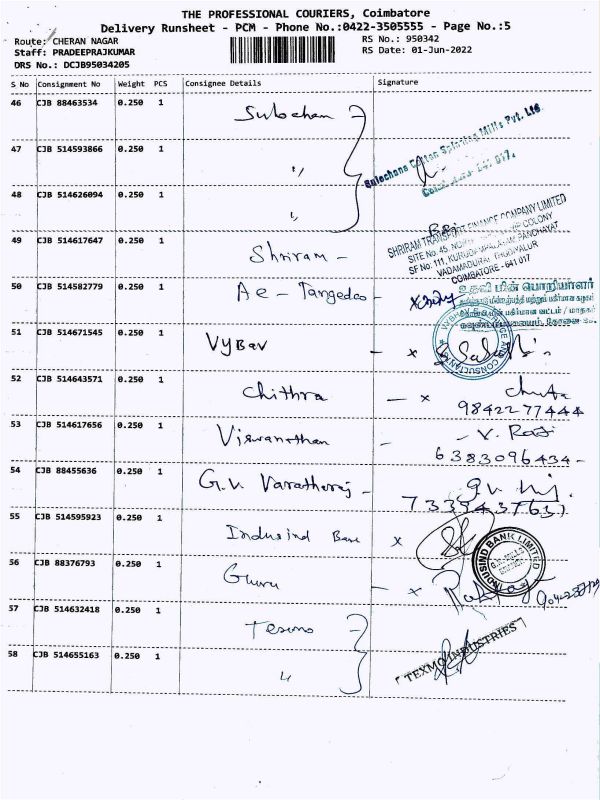 THE PROFESSIONAL COURIERS, Coimbatore
Delivery Runsheet - PCM - Phone No.:0422-3505555 - Page No.:5
Route: CHERAN NAGAR
RS No.: 950342
Staff: PRADEEPRAJKUMAR
RS Date: 01-Jun-2022
DRS No.: DCJB95034205
S No Consignment No Weight PCS Consignee Details Signature
46 CJB 88463534 0.250 1 Sulochan
Sulochana Cotton Spinning Mills Pvt. Ltd.
47 CJB 514593866 0.250 1 "
48 CJB 514626094 0.250 1 "
49 CJB 514617647 0.250 1 Shriram -
SHRIRAM TRANSPORT FINANCE COMPANY LIMITED
SF No: 111, KURUDAMPALAYAM PANCHAYAT
VADAMADURAI, THUDIYALUR
COIMBATORE - 641 017
50 CJB 514582779 0.250 1 Ae - Tangedco -
உதவி மின் பொறியாளர்
51 CJB 514671545 0.250 1 VYBAV - x
CONSULTANTS
52 CJB 514643571 0.250 1 Chithra - x
9842277444
53 CJB 514617656 0.250 1 Viswanathan - V. Raji
6383096434-
54 CJB 88455636 0.250 1 G.V. Varatharaj -
7339437631
55 CJB 514595923 0.250 1 Indusind Bank x
INDUSIND BANK LIMITED
56 CJB 88376793 0.250 1 Guru - x
57 CJB 514632418 0.250 1 Texmo
TEXMO INDUSTRIES
58 CJB 514655163 0.250 1 "